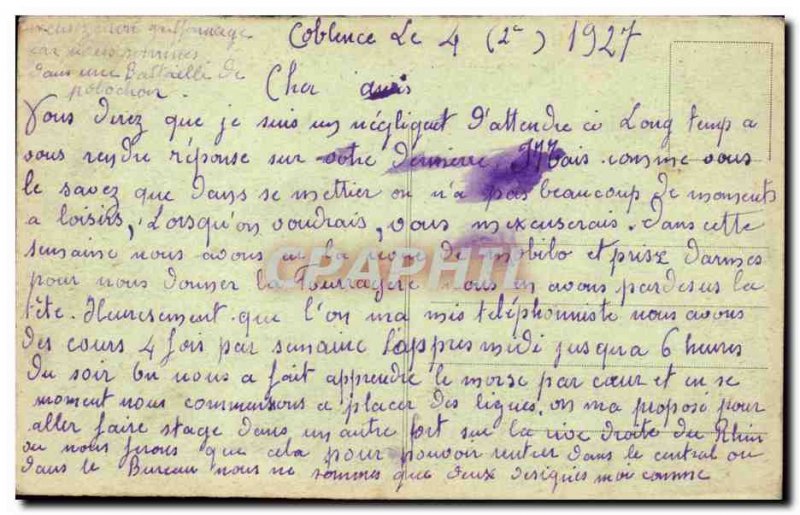 excuse mon griffonnage
car nous sommes
dans une Battaille de
polochon.
Coblence Le 4 (2e) 1927
Cher amis
Vous direz que je suis un négligent d'attendre ci Long temp a
vous rendre réponse sur votre dernière. Mais comme vous
le savez que dans se mettier on n'a pas beaucoup de moments
a loisirs, Lorsqu'on voudrais, vous m'excuserais. Dans cette
semaine nous avons eu la revue de mobilo et prise d'armes
pour nous donner la Fourragère nous en avons pardesus la
tête. Heuresement que l'on ma mis téléphonniste nous avons
des cours 4 fois par semaine l'appres midi jusqu'a 6 heures
du soir On nous a fait apprendre le morse par cœur et en se
moment nous commensons a placer des lignes, on ma proposé pour
aller faire stage dans un autre fort sur la rive droite du Rhin
ou nous ferons que cela pour pouvoir rentrer dans le central ou
dans le Bureau nous ne sommes que deux designés moi comme
CPARPHIL